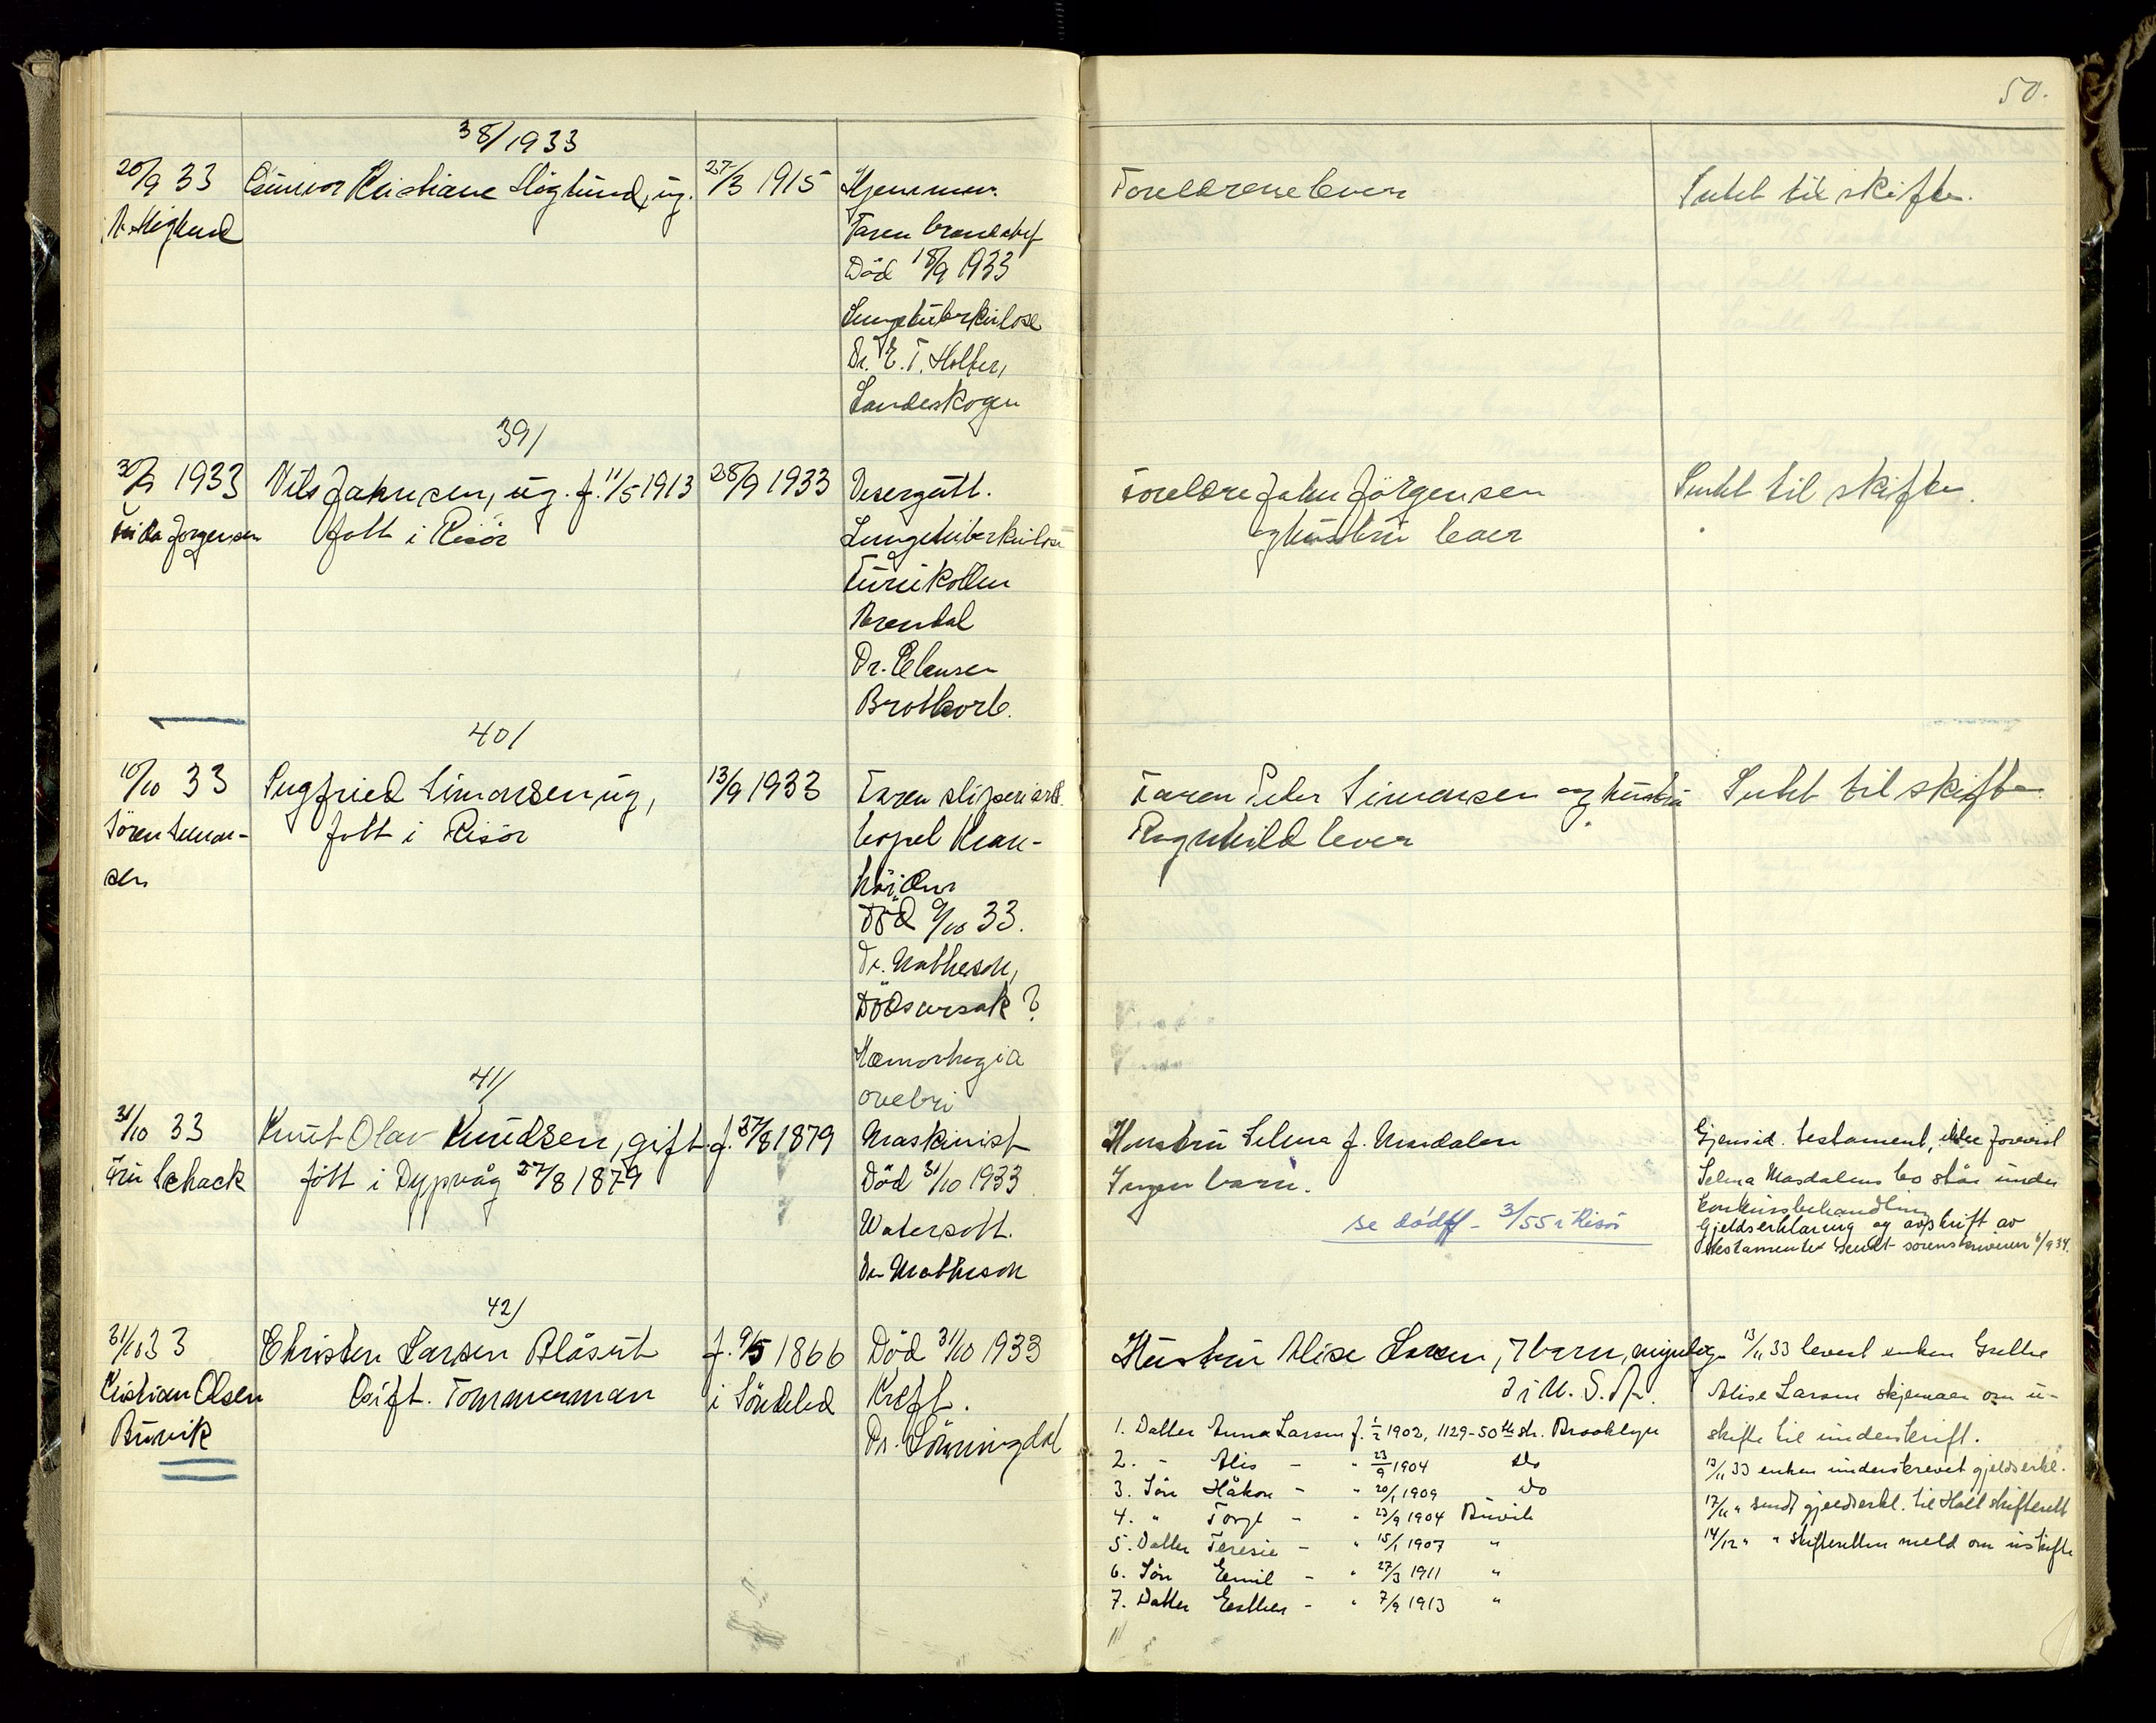 50.
38/1933
20/9 33 Gunvor Kristiane Höglund, ug. 27/3 1915 Hjemmev. Foreldrene lever Intet til skifte.
A. Höglund Faren brandchef
Död 18/9 1933
Lungetuberkulose
Dr. E. T. Holter,
Landeskogen
39/
30/9 1933 Nils Jahnsen, ug. f. 11/5 1913 28/9 1933 Visergutt. Foreldre Jahn Jörgensen Intet til skifte.
Frida Jörgensen född i Risör Lungetuberkulose og hustru lever
Furukollen
Arendal
Dr. Clausen
Brotkorb.
40/
10/10 33 Sigfried Simonsen ug, 13/9 1933 Faren sliperiarb. Faren Peder Simonsen og hustru Intet til skifte
Sören Simon- född i Risör bopel Kran- Ragnhild lever
sen höiden
Död 9/10 33.
Dr. Mathesen,
Dödsårsak?
Hæmorhagia
41/
31/10 33 Knut Olav Knudsen, gift f. 27/8 1879 Maskinist Hustru Selma f. Masdalen Gjensid. testament, ikke forevist
Fru Schack född i Dypvåg 27/8 1879 Död 31/10 1933 Ingen barn. Selma Masdalens bo står under
Watersott. se dödsf. 3/55 i Risör konkursbehandling
Dr Mathesen Gjeldserklæring og avskrift av
testamentet sendt sorenskriveren 6/9 34.
42/
31/10 33 Christen Larsen Blåsut f. 9/5 1866 Död 31/10 1933 Hustru Alise Larsen, 7 barn, myndige 13/11 33 levert enken Grethe
Kristian Olsen Gift. Tömmerman i Söndeled Kreft. 3 i U. S. A. Alise Larsen skjemaer om u-
Buvik Dr. skifte til underskrift.
1. Datter Anna Larsen f. 1/2 1902, 1129-50th str. Brooklyn
2. - Alis - " 23/9 1904 do 13/11 33 enken underskrevet gjeldserkl.
3. Sön Håkon - " 20/1 1909 do
4. " Torge - " 23/9 1904 Buvik 17/11 " sendt gjeldserkl. til Holt skifterett
5. Datter Teresie - " 15/1 1907 " 14/12 " " skifteretten meld om uskifte
6. Sön Emil - " 27/3 1911 "
7. Datter Esther - " 7/9 1913 "